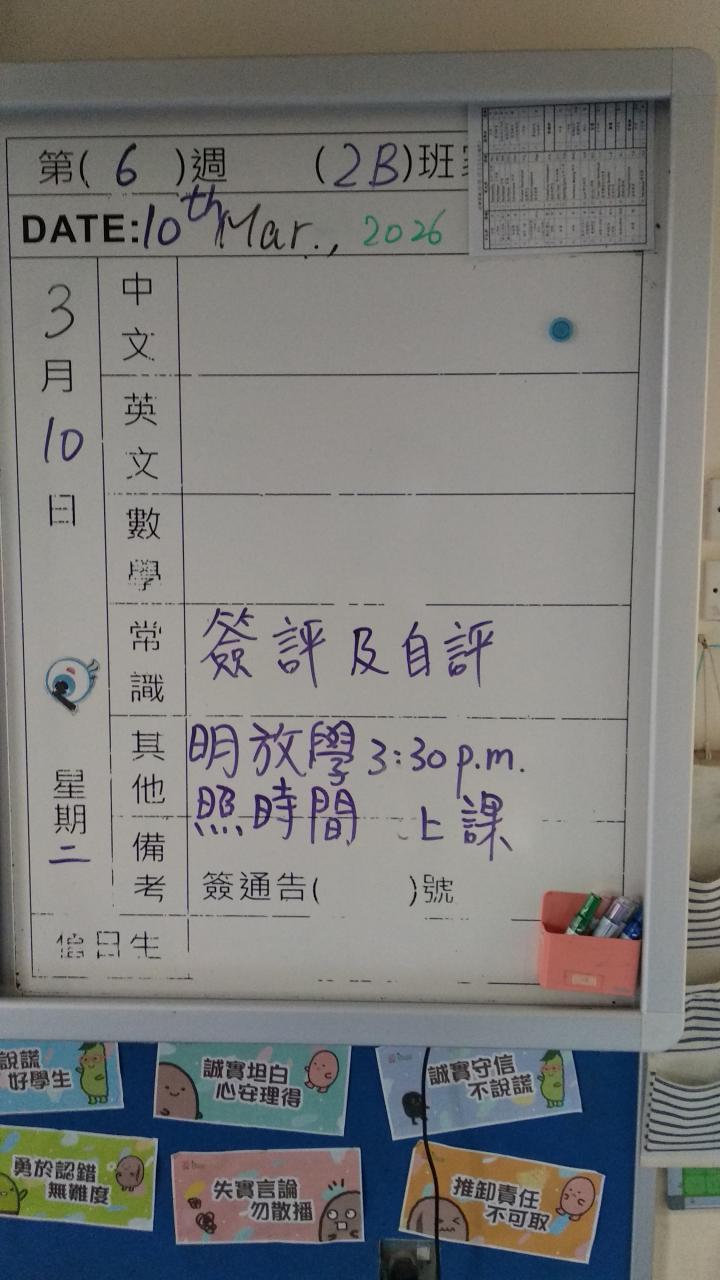 第( 6 )週 (2B)班
DATE:10th Mar., 2026
3月10日
星期二
中文
英文
數學
常識 簽評及自評
其他 明放學3:30p.m.
照時間 上課
備考 簽通告( )號
值日生
說謊
好學生
誠實坦白
心安理得
誠實守信
不說謊
勇於認錯
無難度
失實言論
勿散播
推卸責任
不可取